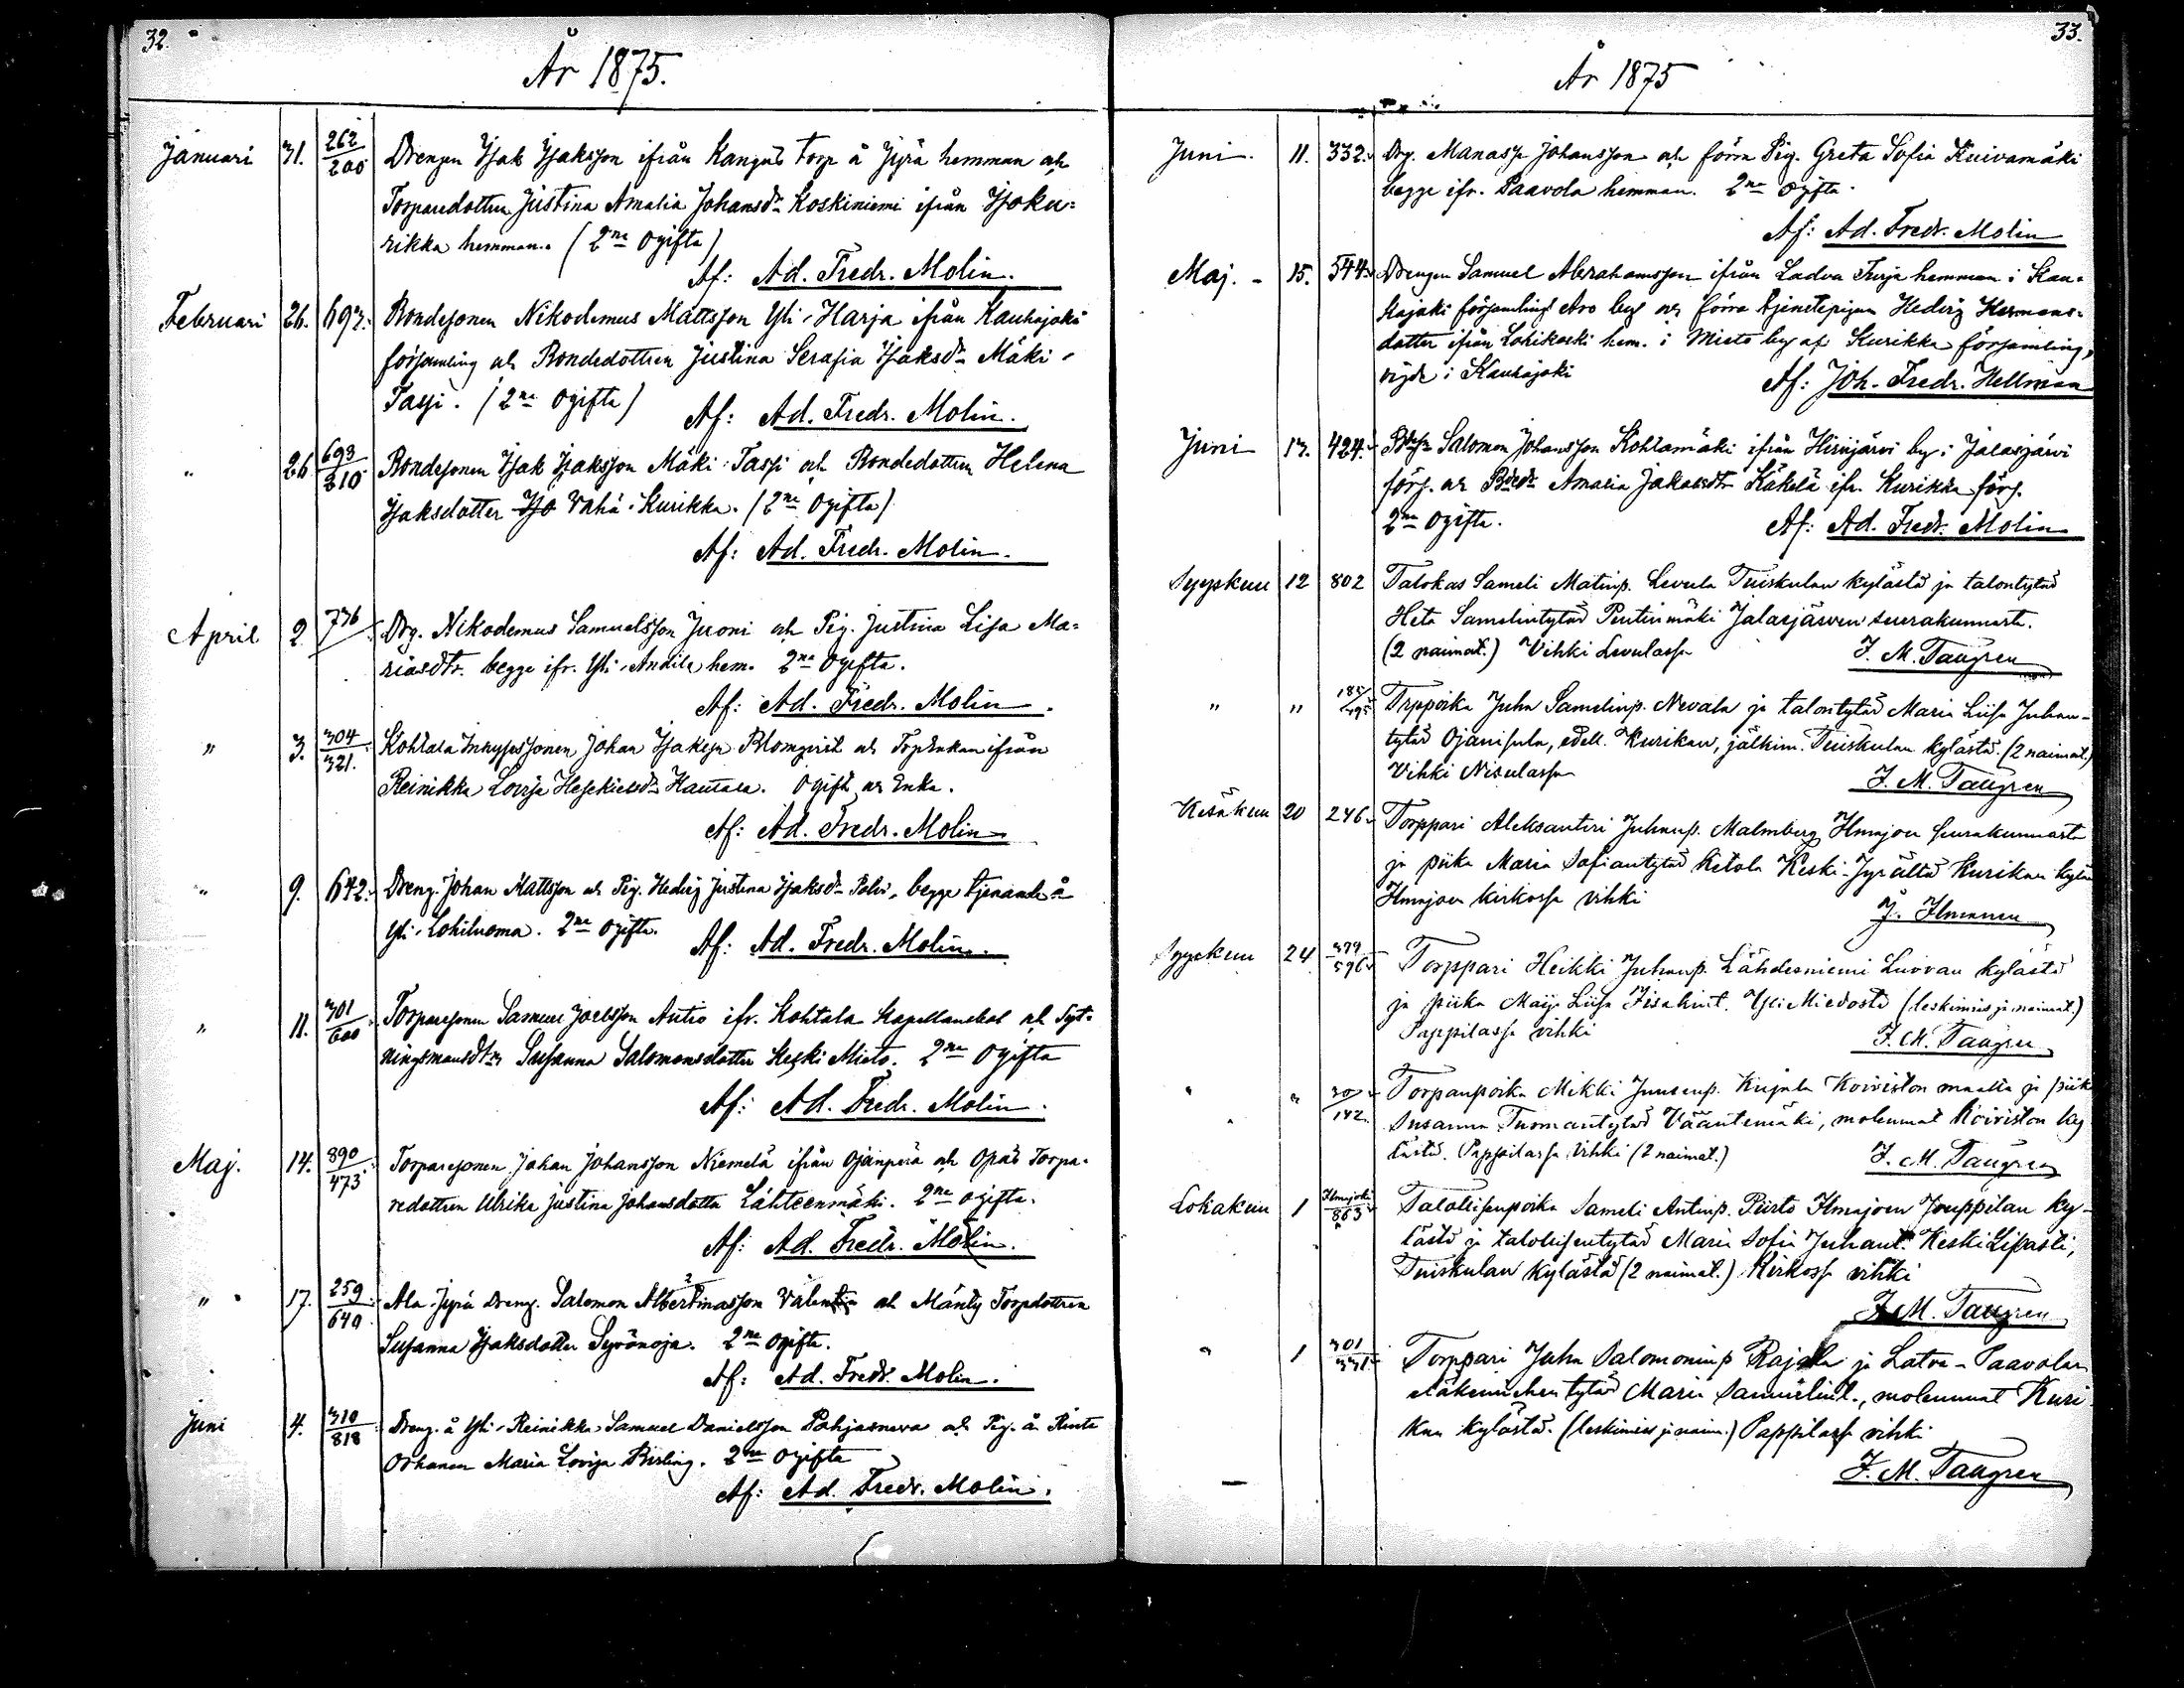 32.
År 1875.
Januari 31. 262/200 Drengen Isak Isaksson ifrån Kangas torp å Jyrä hemman och
Torparedottren Justina Amalia Johansdr Koskiniemi ifrån Isoku=
rikka hemman. (2ne Ogifta)
Af: Ad. Fredr. Molin.
Februari 26. 693. Bondesonen Nikodemus Mattsson Yli-Harja ifrån Kauhajoki
församling och Bondedottren Justina Serafia Isaksdr Mäki-
Tassi. (2ne Ogifta)
Af: Ad. Fredr. Molin.
" 26 693/210 Bondesonen Isak Isaksson Mäki-Tassi och Bondedottren Helena
Isaksdotter Iso Vähä-Kurikka. (2ne Ogifta)
Af: Ad. Fredr. Molin.
April 2 736 Drg. Nikodemus Samuelsson Juoni och Pig. Justina Lisa Ma=
riasdtr. begge ifr. Yli-Annila hem. 2ne Ogifta.
Af: Ad. Fredr. Molin.
" 3. 304/321. Kohtala Johan Isaksson Blomqvist och Torpenkan ifrån
Reinikka Lovisa Hesekielsdr Hautala. Ogift och Enka.
Af: Ad. Fredr. Molin
" 9. 642. Dreng. Johan Mattsson och Pig. Hedvig Justina Isaksdr begge tjenande å
Yli-Lohiluoma. 2ne ogifta.
Af: Ad. Fredr. Molin.
" 11. 301/600 Torparesonen Samuel Joelsson Autio ifr. Kohtala Kapellansbol och Syt=
ningsmansdtr Susanna Salomonsdotter Keski Mieto. 2ne Ogifta
Af: Ad. Fredr. Molin.
Maj. 14. 890/473 Torparesonen Johan Johansson Niemelä ifrån Ojanperä och Opas Torpa=
redottren Ulrika Justina Johansdotter Lähteenmäki. 2ne ogifta.
Af: Ad. Fredr. Molin.
" 17. 259/640 Ala-Jyrä Dreng. Salomon Albertinasson Valentin och Mänty Torpdottren
Susanna Isaksdotter Syvänoja. 2ne Ogifta.
Af: Ad. Fredr. Molin.
Juni 4. 310/818 Dreng. å Yli-Reinikka Samuel Danielsson Pohjasneva och Pig. å Rinta
Orhanen Maria Lovisa Birling. 2ne Ogifta
Af: Ad. Fredr. Molin.
33.
År 1875
Juni. 11. 332. Drg. Manasse Johansson och förra Pig. Greta Sofia Kuivamäki
begge ifr. Paavola hemman. 2ne Ogifta.
Af: Ad. Fredr. Molin
Maj. - 15. 544. Drengen Samuel Abrahamsson ifrån Ladva hemman i Kau=
hajoki församling Aro by och förra tjenstepigan Hedvig Hermans=
dotter ifrån Lohikoski hem. i Mieto by af Kurikka församling,
vigde i Kauhajoki
Af: Joh. Fredr. Hellman
Juni 13. 424. Bdesn Salomon Johansson Kohtamäki ifrån Hirvijärvi by i Jalasjärvi
förs. och Bdedr Amalia Jakobsdtr Käkelä ifr. Kurikka förs.
2ne Ogifta.
Af: Ad. Fredr. Molin
Syyskuu 12 802 Talokas Sameli Matinp. Levula Tuiskulan kylästä ja talontytär
Heta Samelintytär Pentinmäki Jalasjärven seurakunnasta.
(2 naimat.) Vihki Levulassa
J. M. Taugren
" " 185/495 Trppoika Juha Samelinp. Nevala ja talontytär Maria Liisa Juhan-
tytär Ojanisula, edell. Kurikan, jälkim. Tuiskulan kylästä. (2 naimat.)
Vihki Nisulassa
J. M. Taugren
Kesäkuu 20 246. Torppari Aleksanteri Juhanp. Malmberg Ilmajoen seurakunnasta
ja piika Maria Sofiantytär Ketola Keski-Jyrältä Kurikan kylä
Ilmajoen kirkossa vihki
J. Ilmonen
Syyskuu 24 379/596 Torppari Heikki Juhanp. Lähdesniemi Luovan kylästä
ja piika Maija Liisa Iisakint. Yli Miedosta (leskimies ja naimat.)
Pappilassa vihki
J. M. Taugren
" " 30/142. Torpanpoika Mikki Juusenp. Kujala Koiviston maalta ja piik
Susanna Tuomantytär Vääntemäki, molemmat Koiviston ky
lästä. Pappilassa vihki (2 naimat.)
J. M. Taugren
Lokakuu 1 Ilmajoki/863 Talollisenpoika Sameli Antinp. Piirto Ilmajoen Jouppilan ky-
lästä ja talollisentytär Maria Sofia Juhant. Keski Lipasti,
Tuiskulan kylästä (2 naimat.) Kirkossa vihki
J. M. Taugren
" 1 301/331. Torppari Juha Salomoninp Rajala ja Latva-Paavolan
eläkemiehen tytär Maria Samuelint., molemmat Kuri
kan kylästä. (leskimies ja naim.) Pappilassa vihki
J. M. Taugren